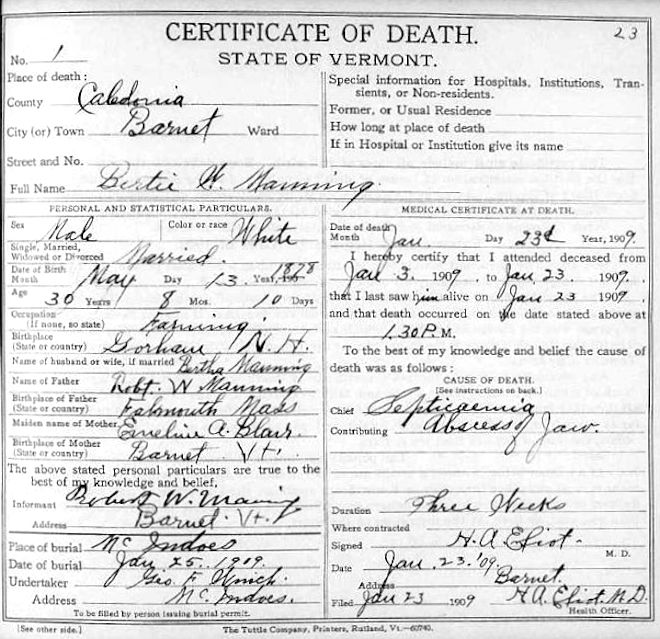 CERTIFICATE OF DEATH.
23
No. 1
STATE OF VERMONT.
Place of death:
County Caledonia
City (or) Town Barnet Ward
Street and No.
Full Name Bertie W. Manning.
Special information for Hospitals, Institutions, Tran-
sients, or Non-residents.
Former, or Usual Residence
How long at place of death
If in Hospital or Institution give its name
PERSONAL AND STATISTICAL PARTICULARS.
Sex Male Color or race White
Single, Married,
Widowed or Divorced Married.
Date of Birth
Month May Day 13 Year, 190 1878
Age 30 Years 8 Mos. 10 Days
Occupation
(If none, so state) Farming.
Birthplace
(State or country) Gorham N.H.
Name of husband or wife, if married Bertha Manning
Name of Father Robt. W Manning
Birthplace of Father
(State or country) Falmouth Mass
Maiden name of Mother Emeline A. Blair
Birthplace of Mother
(State or country) Barnet Vt.
The above stated personal particulars are true to the
best of my knowledge and belief.
Informant Robert W. Maning
Address Barnet. Vt.
Place of burial Mc Indoes
Date of burial Jan 25. 1909.
Undertaker Geo. F.
Address Mc. Indoes.
To be filed by person issuing burial permit.
MEDICAL CERTIFICATE AT DEATH.
Date of death
Month Jan. Day 23d Year, 1909.
I hereby certify that I attended deceased from
Jan 3. 1909 , to Jan 23 1909 ,
that I last saw him alive on Jan 23 1909 ,
and that death occurred on the date stated above at
1.30 P. M.
To the best of my knowledge and belief the cause of
death was as follows:
CAUSE OF DEATH.
[See instructions on back.]
Chief Septicaemia
Contributing Abscess of Jaw.
Duration Three Weeks
Where contracted
Signed H. A Eliot. M. D.
Date Jan. 23. '09.
Address Barnet.
Filed Jan 23 1909 H A. Eliot. M.D.
Health Officer.
[See other side.]
The Tuttle Company, Printers, Rutland, Vt.—60740.